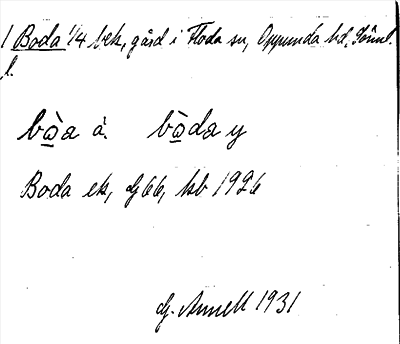 1 Boda 1/4 bek, gård i Floda sn, Oppunda hd, Söml.
l.
bo̲̊̀a ä. bo̲̊̀da y
Boda ek, dj 66, hb 1926
dj. Annell 1931